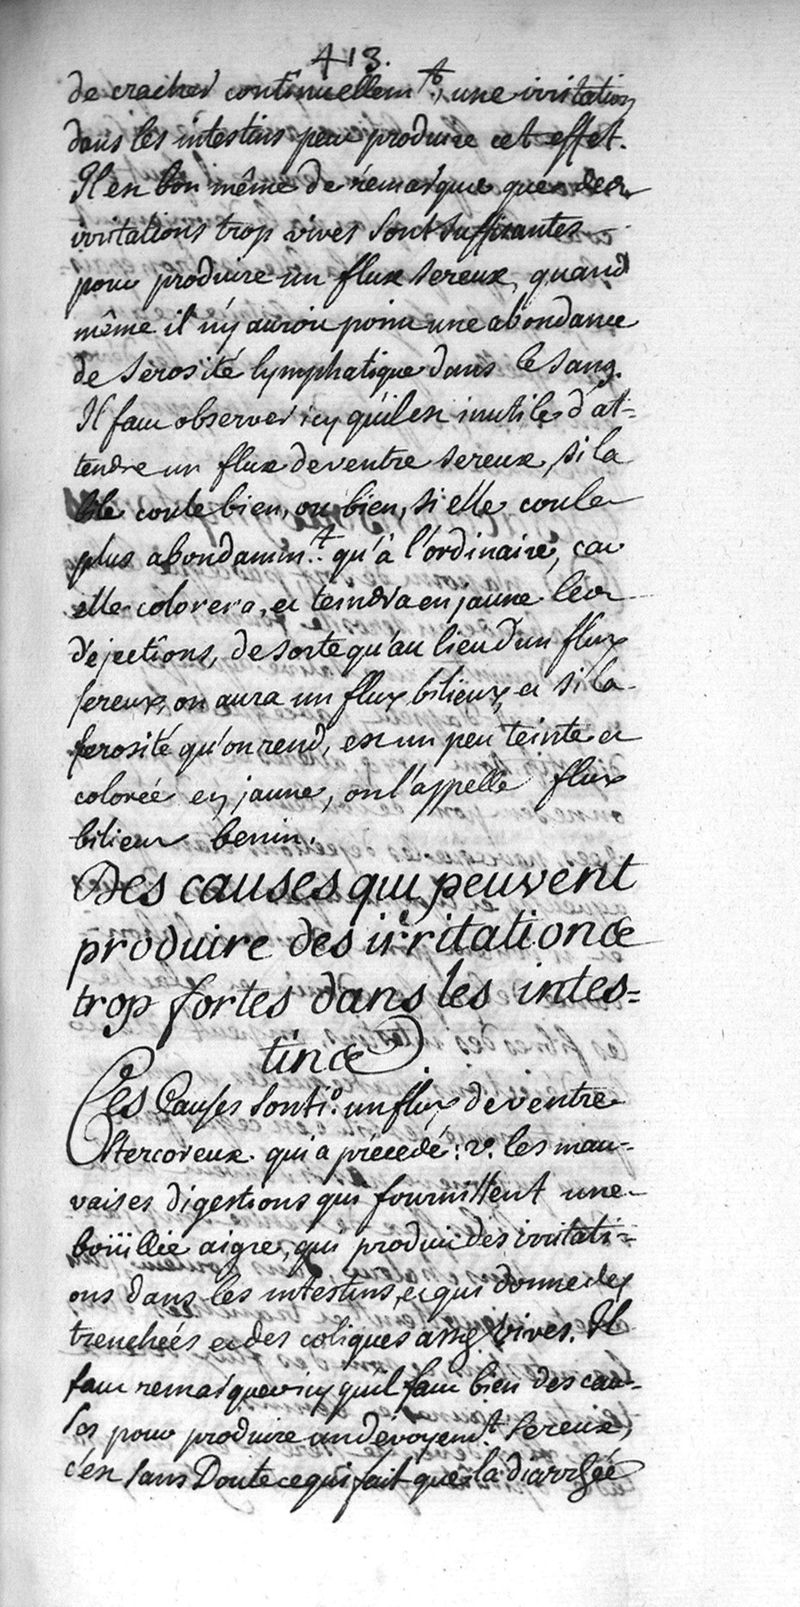 413.
de cracher continuellem.t, une irritation
dans les intestins peut produire cet effet.
Il est bon même de remarquer que des
irritations trop vives sont suffisantes
pour produire un flux sereux, quand
même il n'y auroit point une abondance
de serosité lymphatique dans le sang.
Il faut observer icy qu'il est inutile d'at=
tendre un flux de ventre sereux, si la
bile coule bien, ou bien, si elle coule
plus abondamm.t qu'à l'ordinaire, car
elle colorera, et teindra en jaune les
déjections, de sorte qu'au lieu d'un flux
sereux, on aura un flux bilieux, et si la
serosité qu'on rend, est un peu teinte et
colorée en jaune, on l'appelle flux
bilieux benin.
Des causes qui peuvent
produire des irritations
trop fortes dans les intes=
tins.
Ces Causes sont 1.o un flux de ventre
stercoreux qui a précedé: 2.o les mau=
vaises digestions qui fournissent une
boüillie aigre, qui produit des irritati=
ons dans les intestins, et qui donne des
trenchées et des coliques assez vives. Il
faut remarquer icy qu'il faut bien des cau=
ses pour produire un dévoyem.t sereux,
c'est sans Doute ce qui fait que la diarrhée